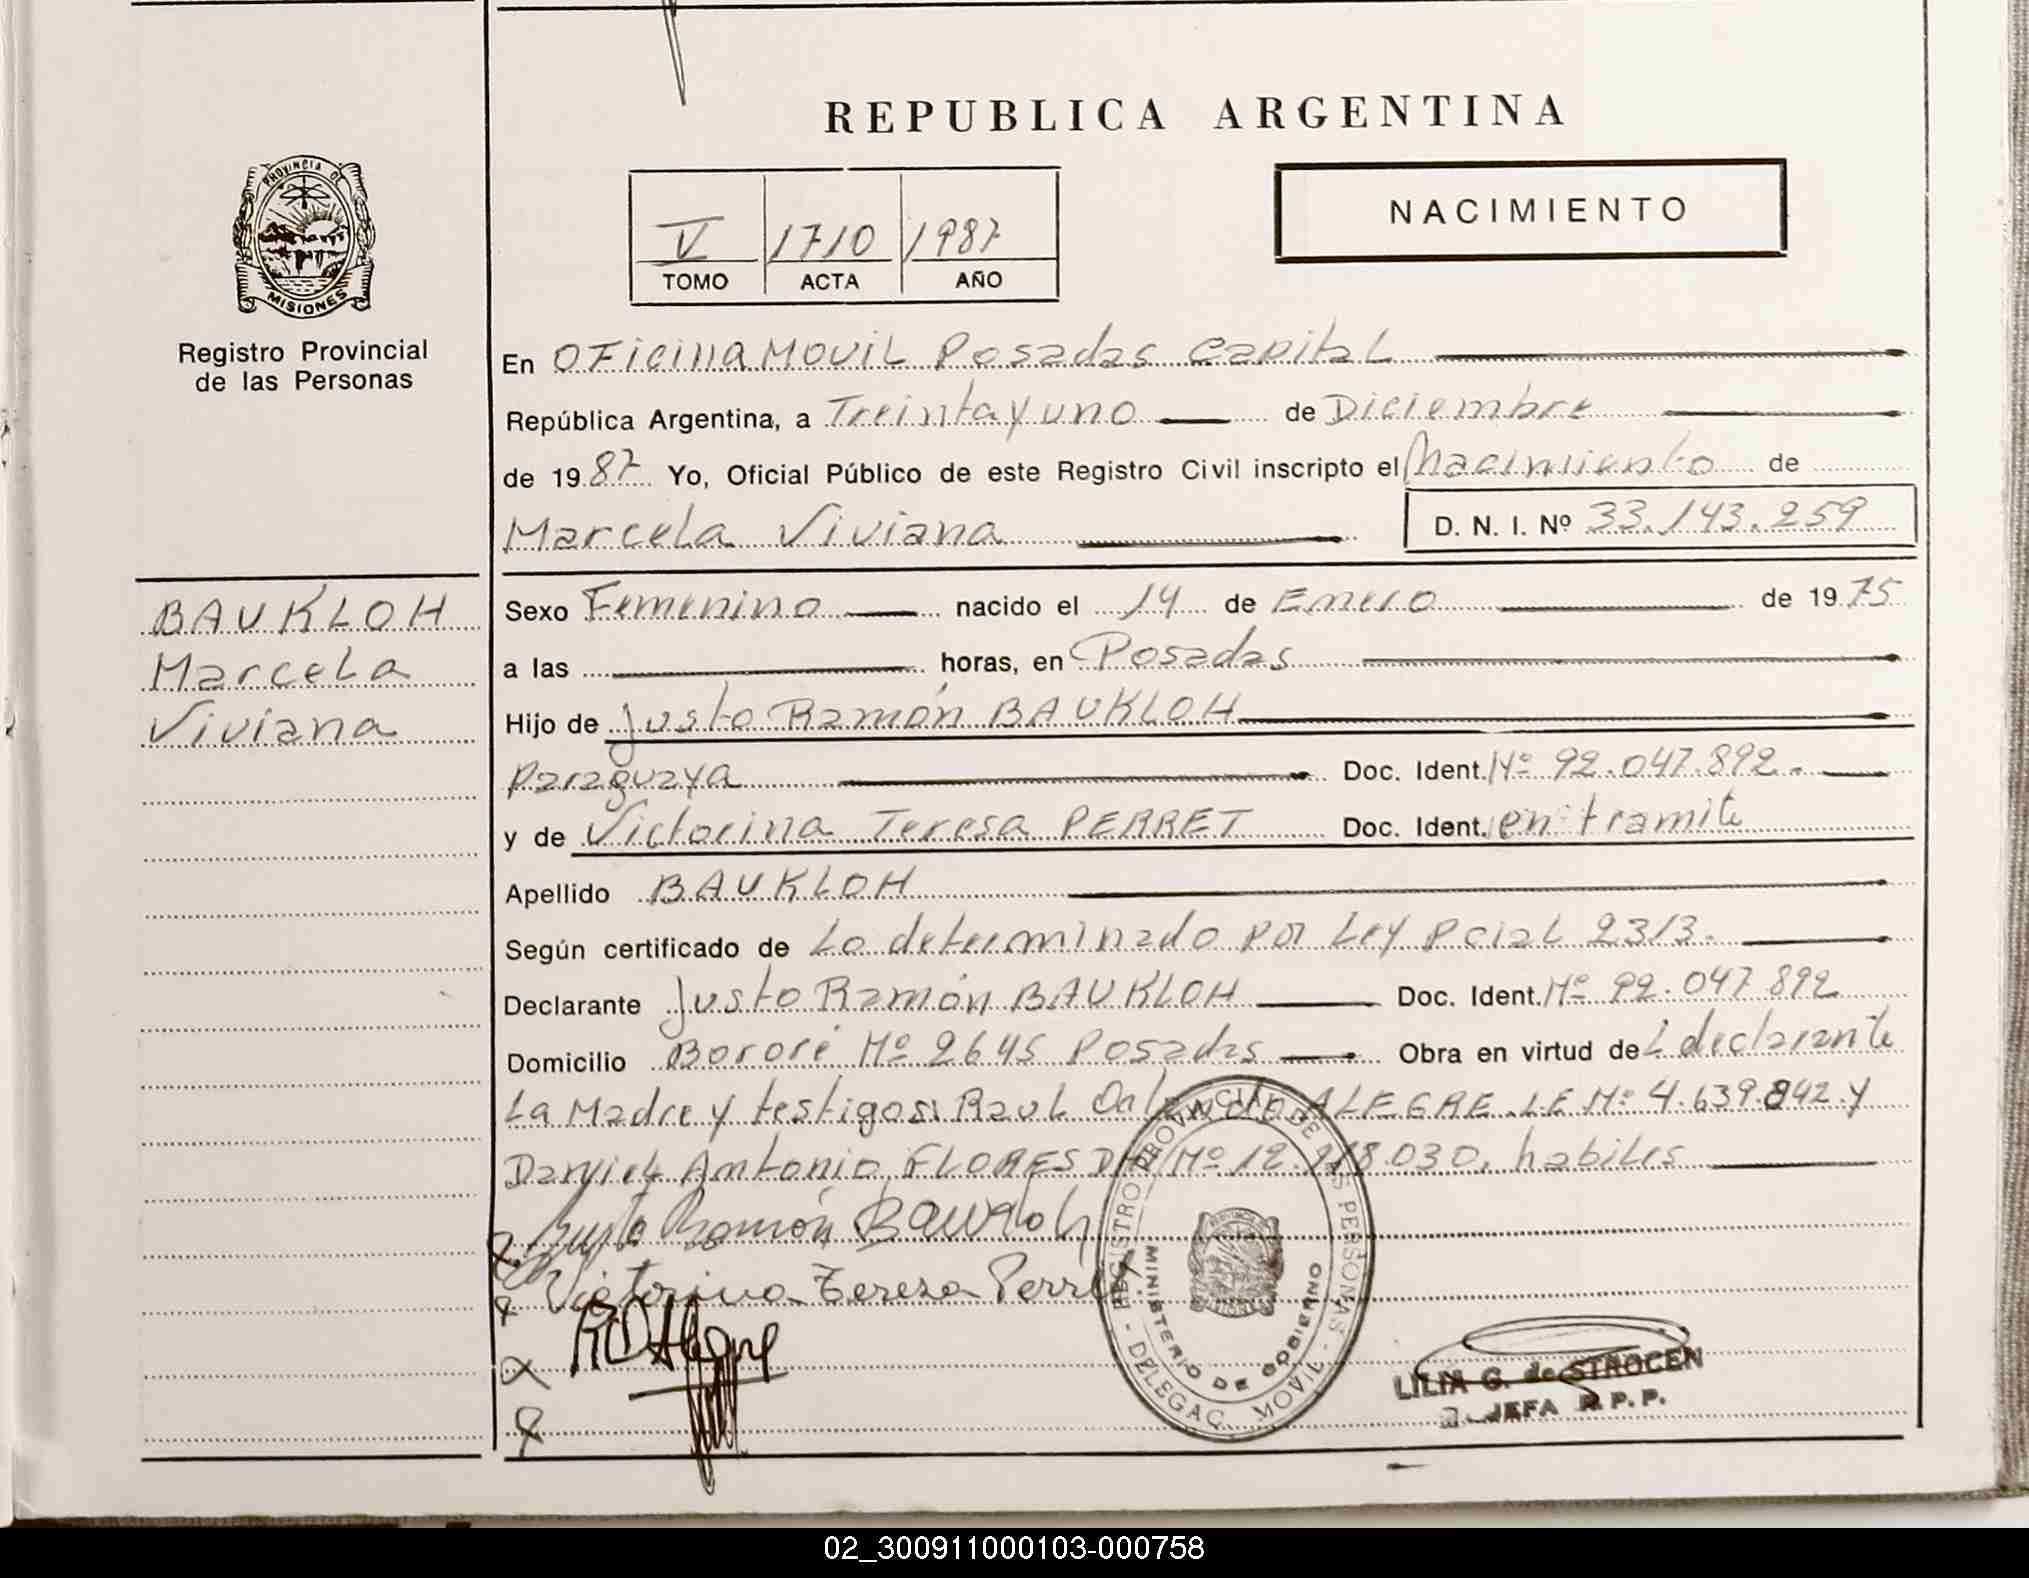 REPUBLICA ARGENTINA
PROVINCIA DE
MISIONES
Registro Provincial
de las Personas
NACIMIENTO
V 1710 1987
TOMO ACTA AÑO
En OFicina MOVIL Posadas Capital
República Argentina, a Treinta y uno de Diciembre
de 1987 Yo, Oficial Público de este Registro Civil inscripto el Nacimiento de
Marcela Viviana D. N. I. Nº 33.143.259
BAUKLOH
Marcela
Viviana
Sexo Femenino nacido el 14 de Enero de 1975
a las horas, en Posadas
Hijo de Justo Ramón BAUKLOH
Paraguaya Doc. Ident. Nº 92.047.892.
y de Victorina Teresa PERRET Doc. Ident. en tramite
Apellido BAUKLOH
Según certificado de Lo determinado por Ley Pcial 2313.
Declarante Justo Ramón BAUKLOH Doc. Ident. Nº 92.047.892
Domicilio Bororé Nº 2645 Posadas Obra en virtud de L declarante
La Madre y testigos: Raul Orlando ALEGRE LE Nº 4.639.842 y
Daniel Antonio FLORES DNI Nº 12. habiles
Justo Ramón BAUKloh
Victorina Teresa Perret
RO Alegre
REGISTRO PROVINCIAL DE LAS PERSONAS - DELEGAC. MOVIL -
MINISTERIO DE GOBIERNO
LILIA G. de STROCEN
JEFA R.P.P.
02_300911000103-000758